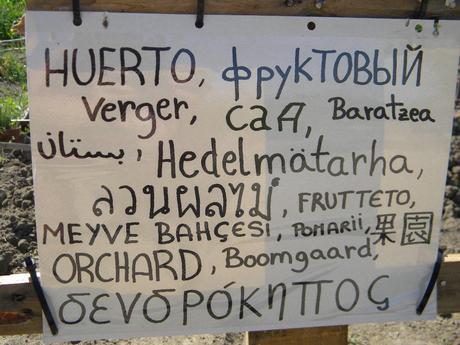 HUERTO, фруктовый
verger, сад, Baratzea
بستان, Hedelmätarha,
สวนผลไม้, FRUTTETO,
MEYVE BAHÇESI, POMARII, 果園
ORCHARD, Boomgaard,
δενδρόκηπος